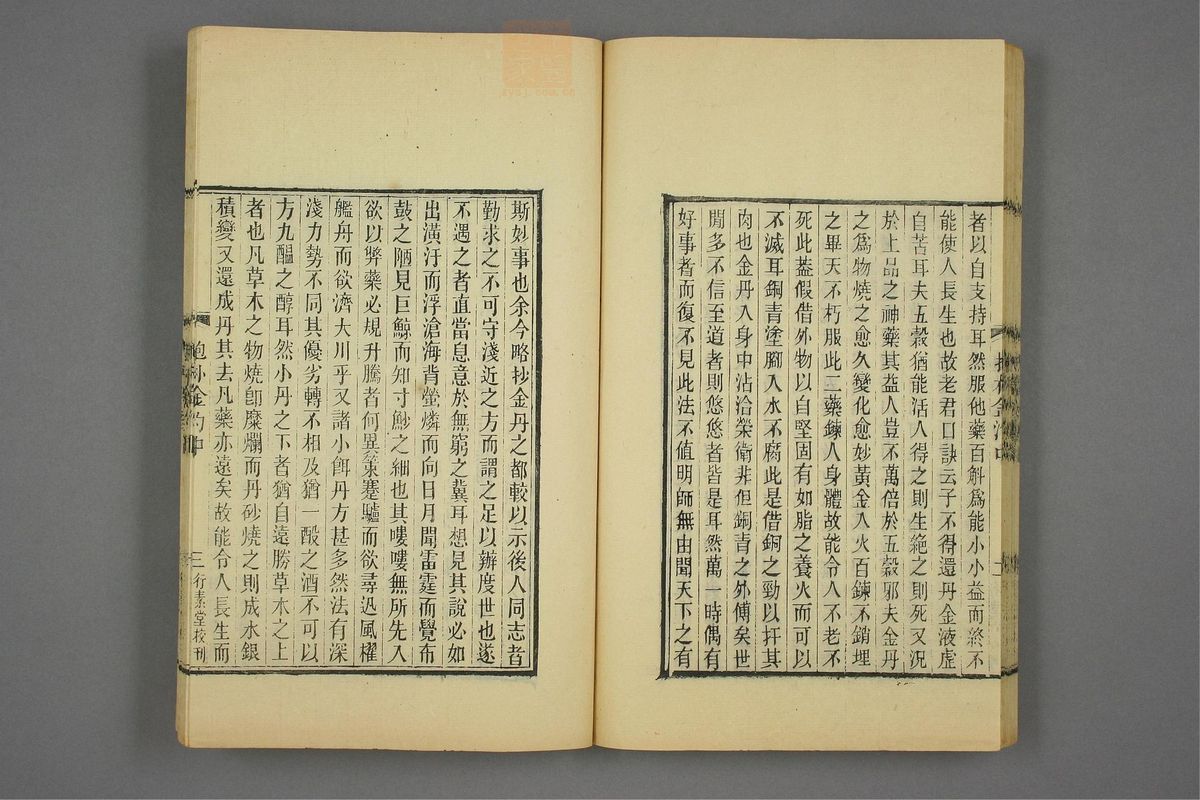 者以自支持耳然服他藥百斛為能小小益而終不
能使人長生也故老君口訣云子不得還丹金液虛
自苦耳夫五穀猶能活人得之則生絕之則死又況
於上品之神藥其益人豈不萬倍於五穀邪夫金丹
之為物燒之愈久變化愈妙黃金入火百鍊不銷埋
之畢天不朽服此二藥鍊人身體故能令人不老不
死此蓋假借外物以自堅固有如脂之養火而可以
不滅耳銅青塗腳入水不腐此是借銅之勁以扞其
肉也金丹入身中沾洽榮衛非但銅青之外傅矣世
間多不信至道者則悠悠者皆是耳然萬一時偶有
好事者而復不見此法不值明師無由聞天下之有
斯妙事也余今略抄金丹之都較以示後人同志者
勤求之不可守淺近之方而謂之足以辦度世也遂
不遇之者直當息意於無窮之冀耳想見其說必如
出潢汙而浮滄海背螢燐而向日月聞雷霆而覺布
鼓之陋見巨鯨而知寸魦之細也其嘍嘍無所先入
欲以弊藥必規升騰者何異策蹇驢而欲尋迅風櫂
艦舟而欲濟大川乎又諸小餌丹方甚多然法有深
淺力勢不同其優劣轉不相及猶一酘之酒不可以
方九醞之醇耳然小丹之下者猶自遠勝草木之上
者也凡草木之物燒即糜爛而丹砂燒之則成水銀
積變又還成丹其去凡藥亦遠矣故能令人長生而
三 行素堂校刊